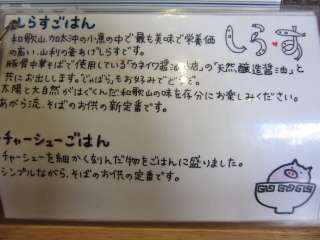 しらすごはん
しらす
和歌山、加太沖の小魚の中で最も美味で栄養価
の高い、山利の釜あげしらすです。
豚骨中華そばで使用している「カネイワ醤油本店」の「天然醸造醤油」と
共にお出しします。じゃばら。もお好みでどうぞ。
太陽と大自然がはぐくんだ和歌山の味を存分にお楽しみください。
あがら流、そばのお供の新定番です。
チャーシューごはん
チャーシューを細かく刻んだ物をごはんに盛りました。
シンプルながら、そばのお供の定番です。